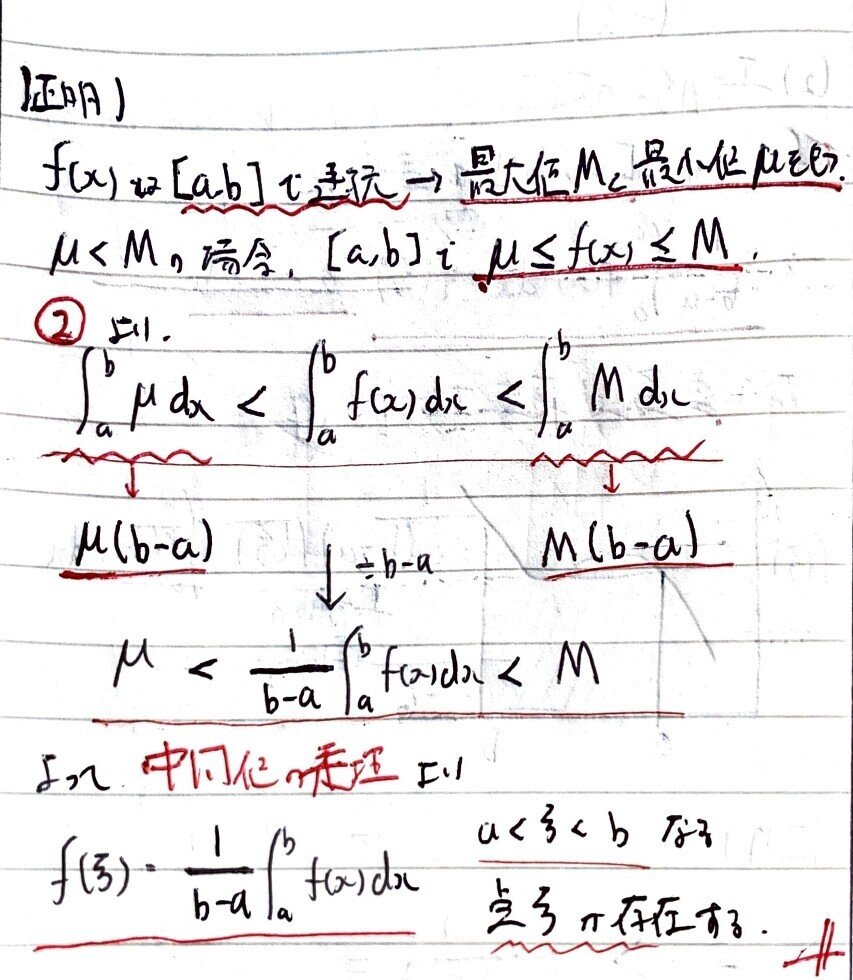 証明)
f(x)が[a,b]で連続→最大値M、最小値μを持つ.
μ<Mの場合、[a,b]で μ≤f(x)≤M.
② より.
∫_a^b μ dx < ∫_a^b f(x) dx < ∫_a^b M dx
↓ ↓
μ(b-a) ↓÷b-a M(b-a)
μ < 1/(b-a) ∫_a^b f(x)dx < M
よって 中間値の定理 より
f(ξ)= 1/(b-a) ∫_a^b f(x)dx a<ξ<b なる
点ξが存在する.